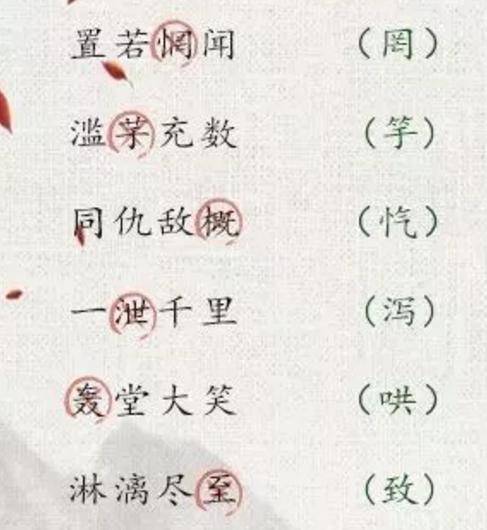 置若惘闻 （罔）
滥茅充数 （竽）
同仇敌概 （忾）
一泄千里 （泻）
轰堂大笑 （哄）
淋漓尽至 （致）